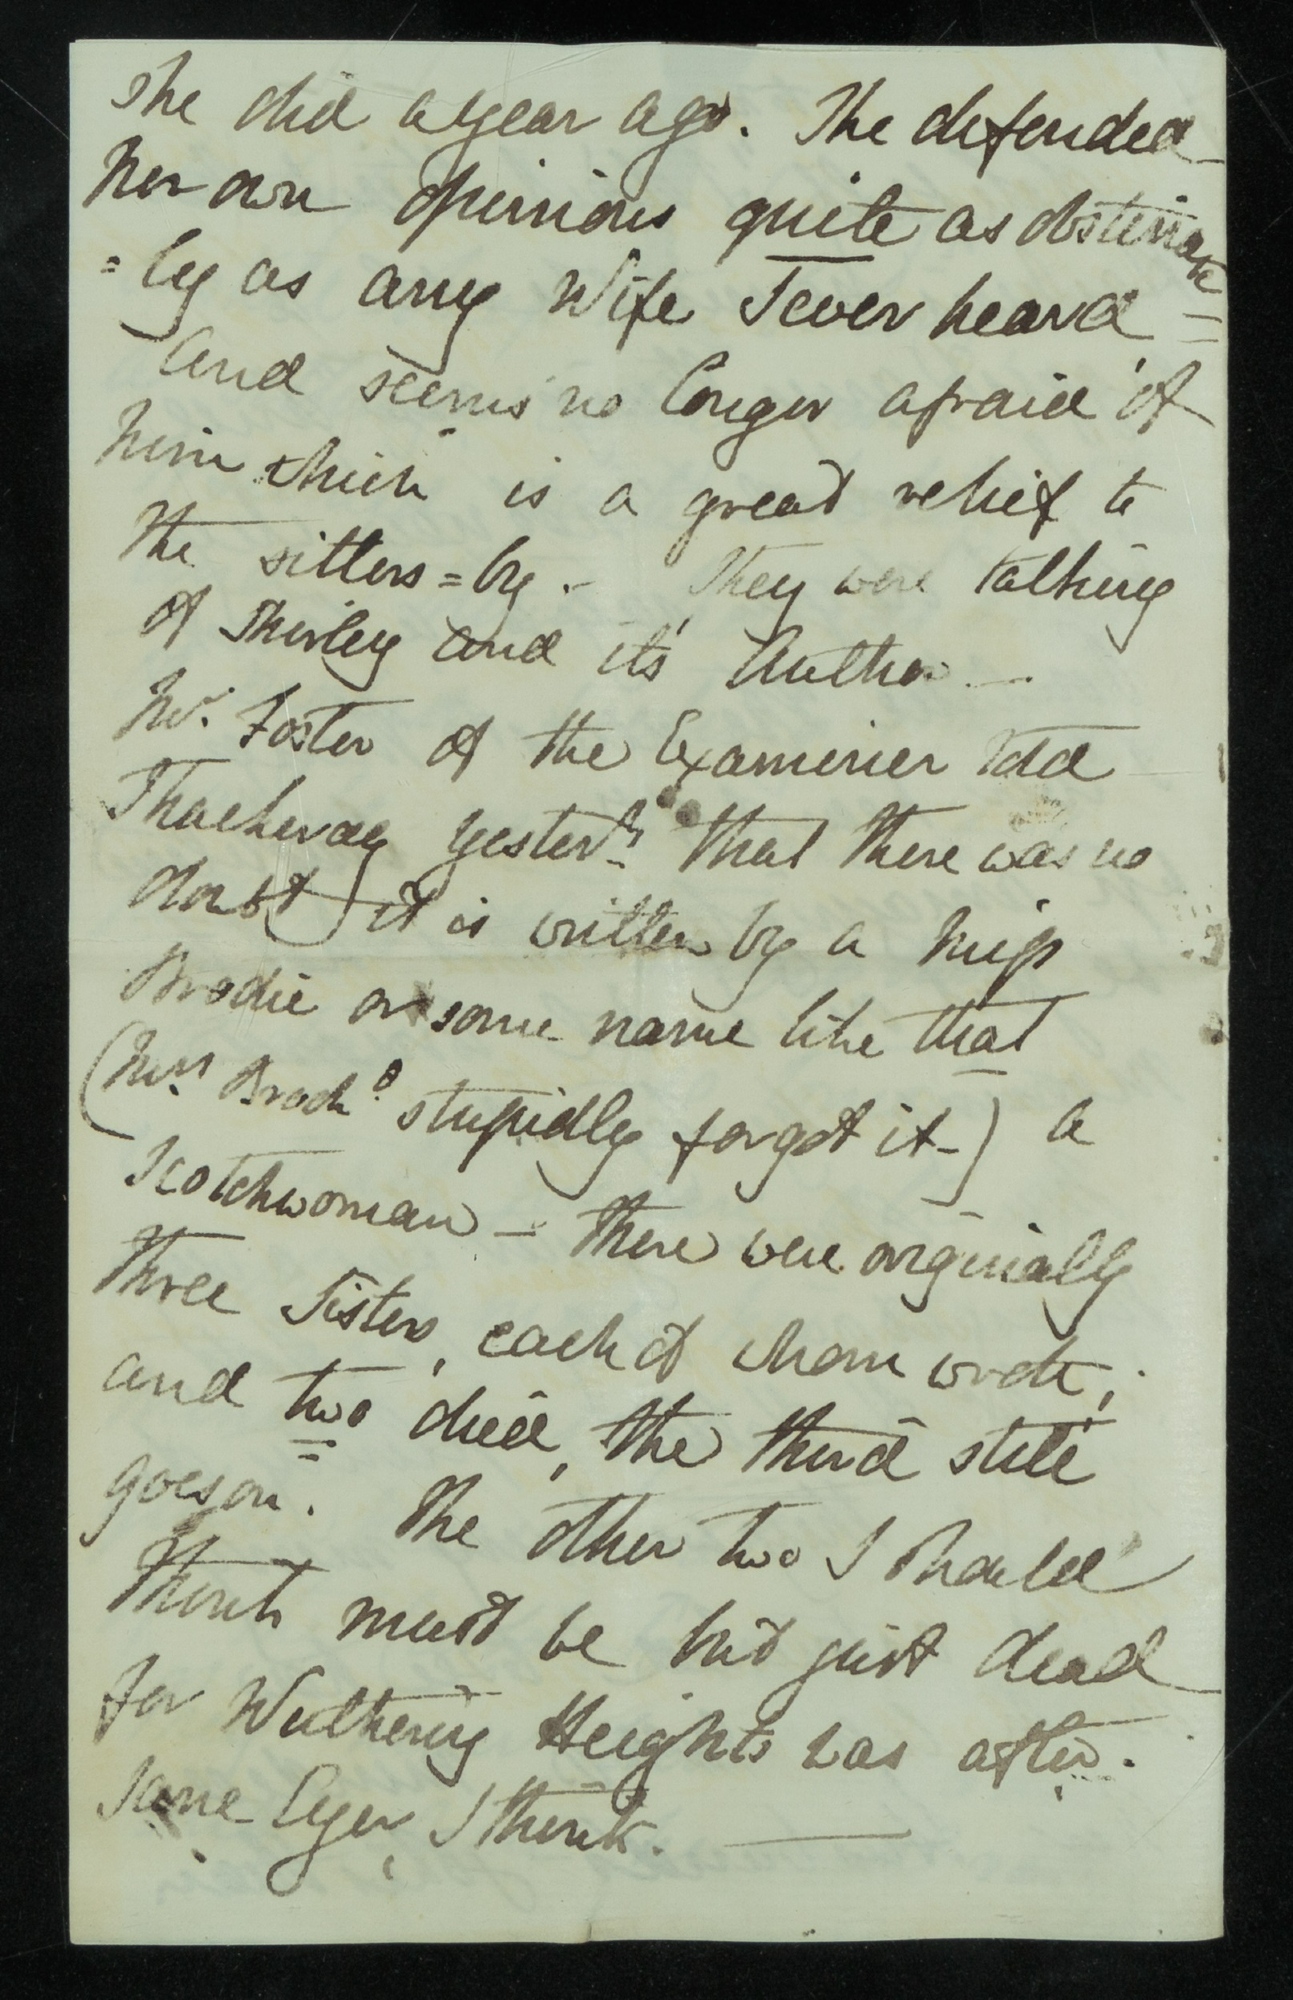 she did a year ago. She defended
her own opinions quite as obstinate
=ly as any Wife I ever heard =
and seems no longer afraid of
him which is a great relief to
the sitters=by. - They were talking
of Shirley and it's Author —
Mr. Foster of the Examiner told
Thackeray yesterdy that there was no
doubt it is written by a Miss
Brodie or some name like that
(Mrs Brookd stupidly forgot it-) a
Scotchwoman — There were originally
three Sisters, each of whom wrote,
and two died, the third still
goes on. The other two I should
think must be but just dead
for Wuthering Heights was after.
Jane Eyer, I think. —